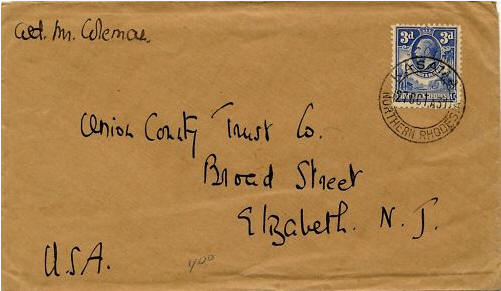 Att. Mr. Coleman.
3d 3d
KASAMA
OCT
NORTHERN RHODESIA
Union County Trust Co.
Broad Street
Elizabeth. N. J.
U.S.A.